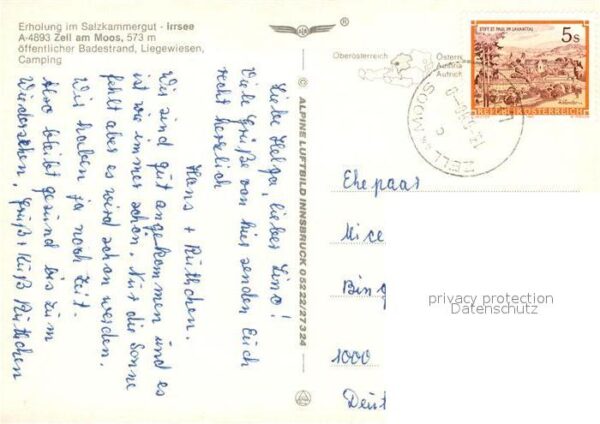 Erholung im Salzkammergut - Irrsee
A-4893 Zell am Moos, 573 m
öffentlicher Badestrand, Liegewiesen,
Camping
®
Oberösterreich
STIFT ST. PAUL IM LAVANTTAL
5 S
REPUBLIK ÖSTERREICH
ZELL AM MOOS
© ALPINE LUFTBILD INNSBRUCK 05222/27324
Liebe Helga, lieber Lino!
Viele Grüße von hier senden Euch
recht herzlich
Hans + Rüthchen.
Wir sind gut angekommen und es
ist wie immer schön. Nur die Sonne
fehlt aber es wird schon werden.
Wir haben ja noch Zeit.
Also bleibt gesund bis zum
Wiedersehen, Gruß + Kuß Rüthchen
Ehepaar
Mice
Bing
1000
Deut
privacy protection
Datenschutz